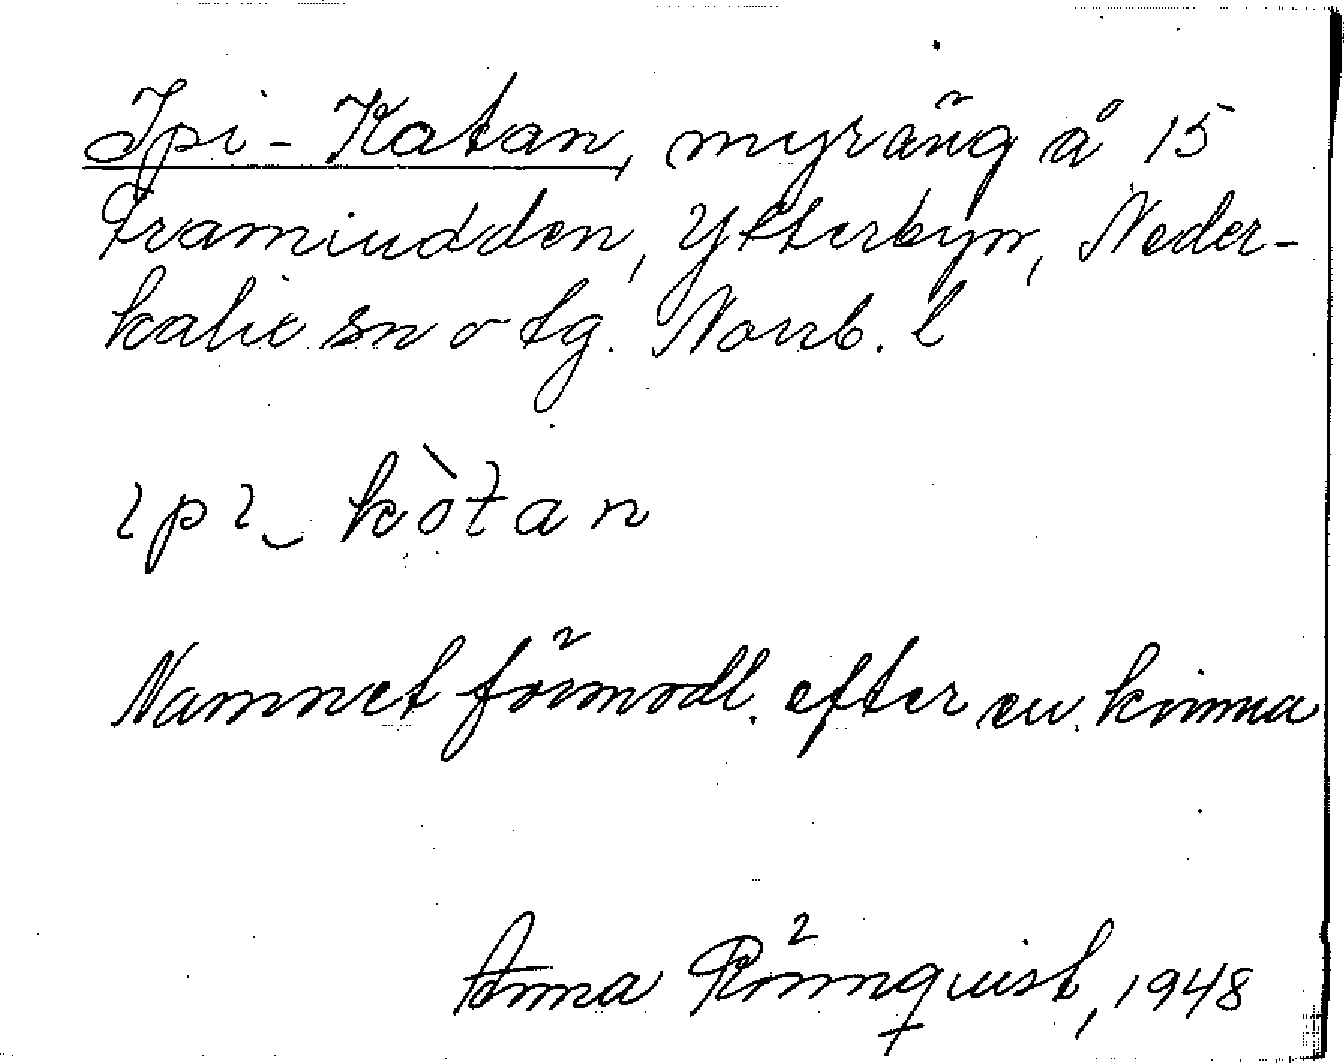 Ipi-Katan, myräng å 15
Framiudden, Ytterbyn, Neder-
kalix sn o tg. Norrb. l
ɩpɩ‿kòtan
Namnet förmodl. efter en kvinna
Anna Rönnquist, 1948